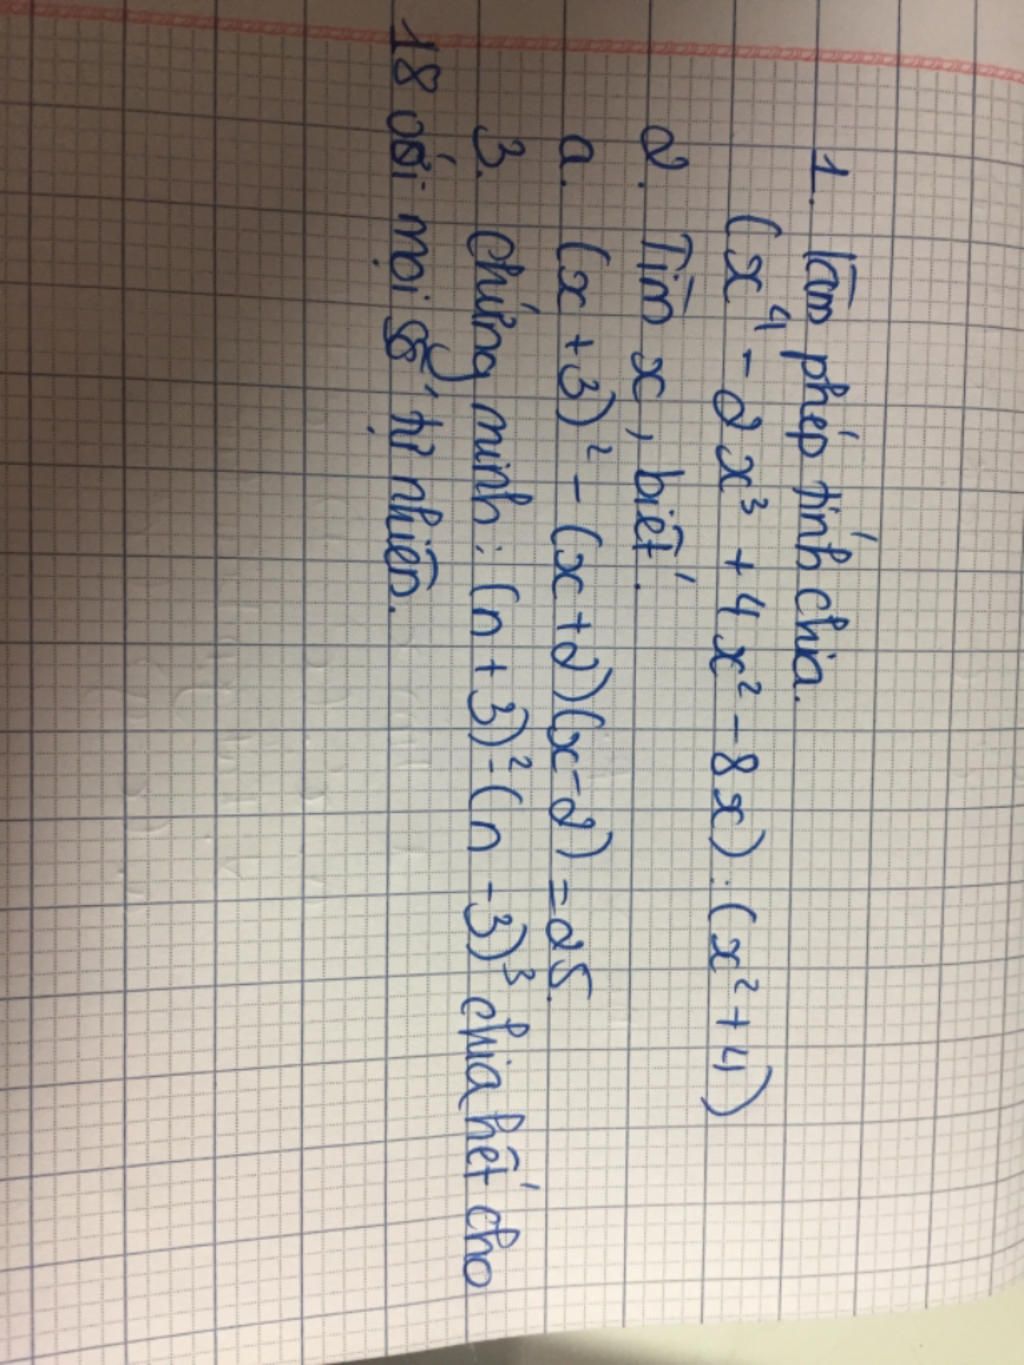 1. Làm phép tính chia.
(x⁴ - 2x³ + 4x² - 8x) : (x² + 4)
2. Tìm x, biết.
a. (x + 3)² - (x + 2)(x - 2) = 25.
3. Chứng minh: (n + 3)² - (n - 3)³ chia hết cho
18 với mọi số tự nhiên.